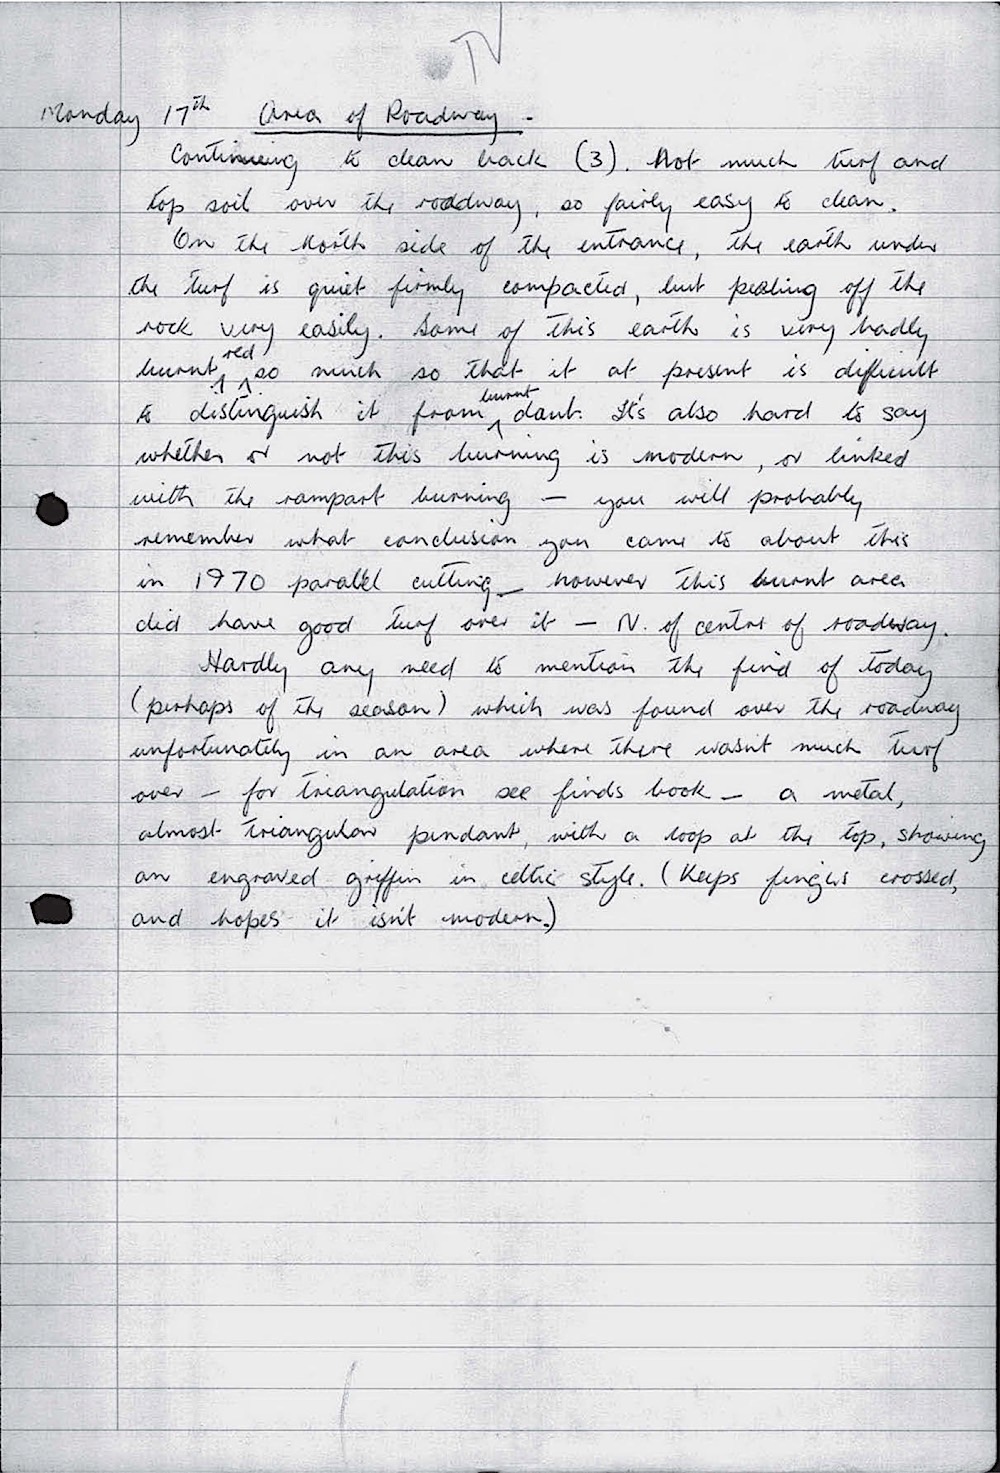 IV
Monday 17th Area of Roadway -
Continueing to clean back (3). Not much turf and
top soil over the roadway, so fairly easy to clean.
On the North side of the entrance, the earth under
the turf is quiet firmly compacted, but pealing off the
rock very easily. Some of this earth is very badly
burnt red so much so that it at present is difficult
to distinguish it from burnt daub. It's also hard to say
whether or not this burning is modern, or linked
with the rampart burning — you will probably
remember what conclusion you came to about this
in 1970 parallel cutting — however this burnt area
did have good turf over it — N. of centre of roadway.
Hardly any need to mention the find of today
(perhaps of the season) which was found over the roadway
unfortunately in an area where there wasn't much turf
over — for triangulation see finds book — a metal,
almost triangular pendant, with a loop at the top, showing
an engraved griffin in celtic style. (Keeps fingers crossed,
and hopes it isn't modern.)